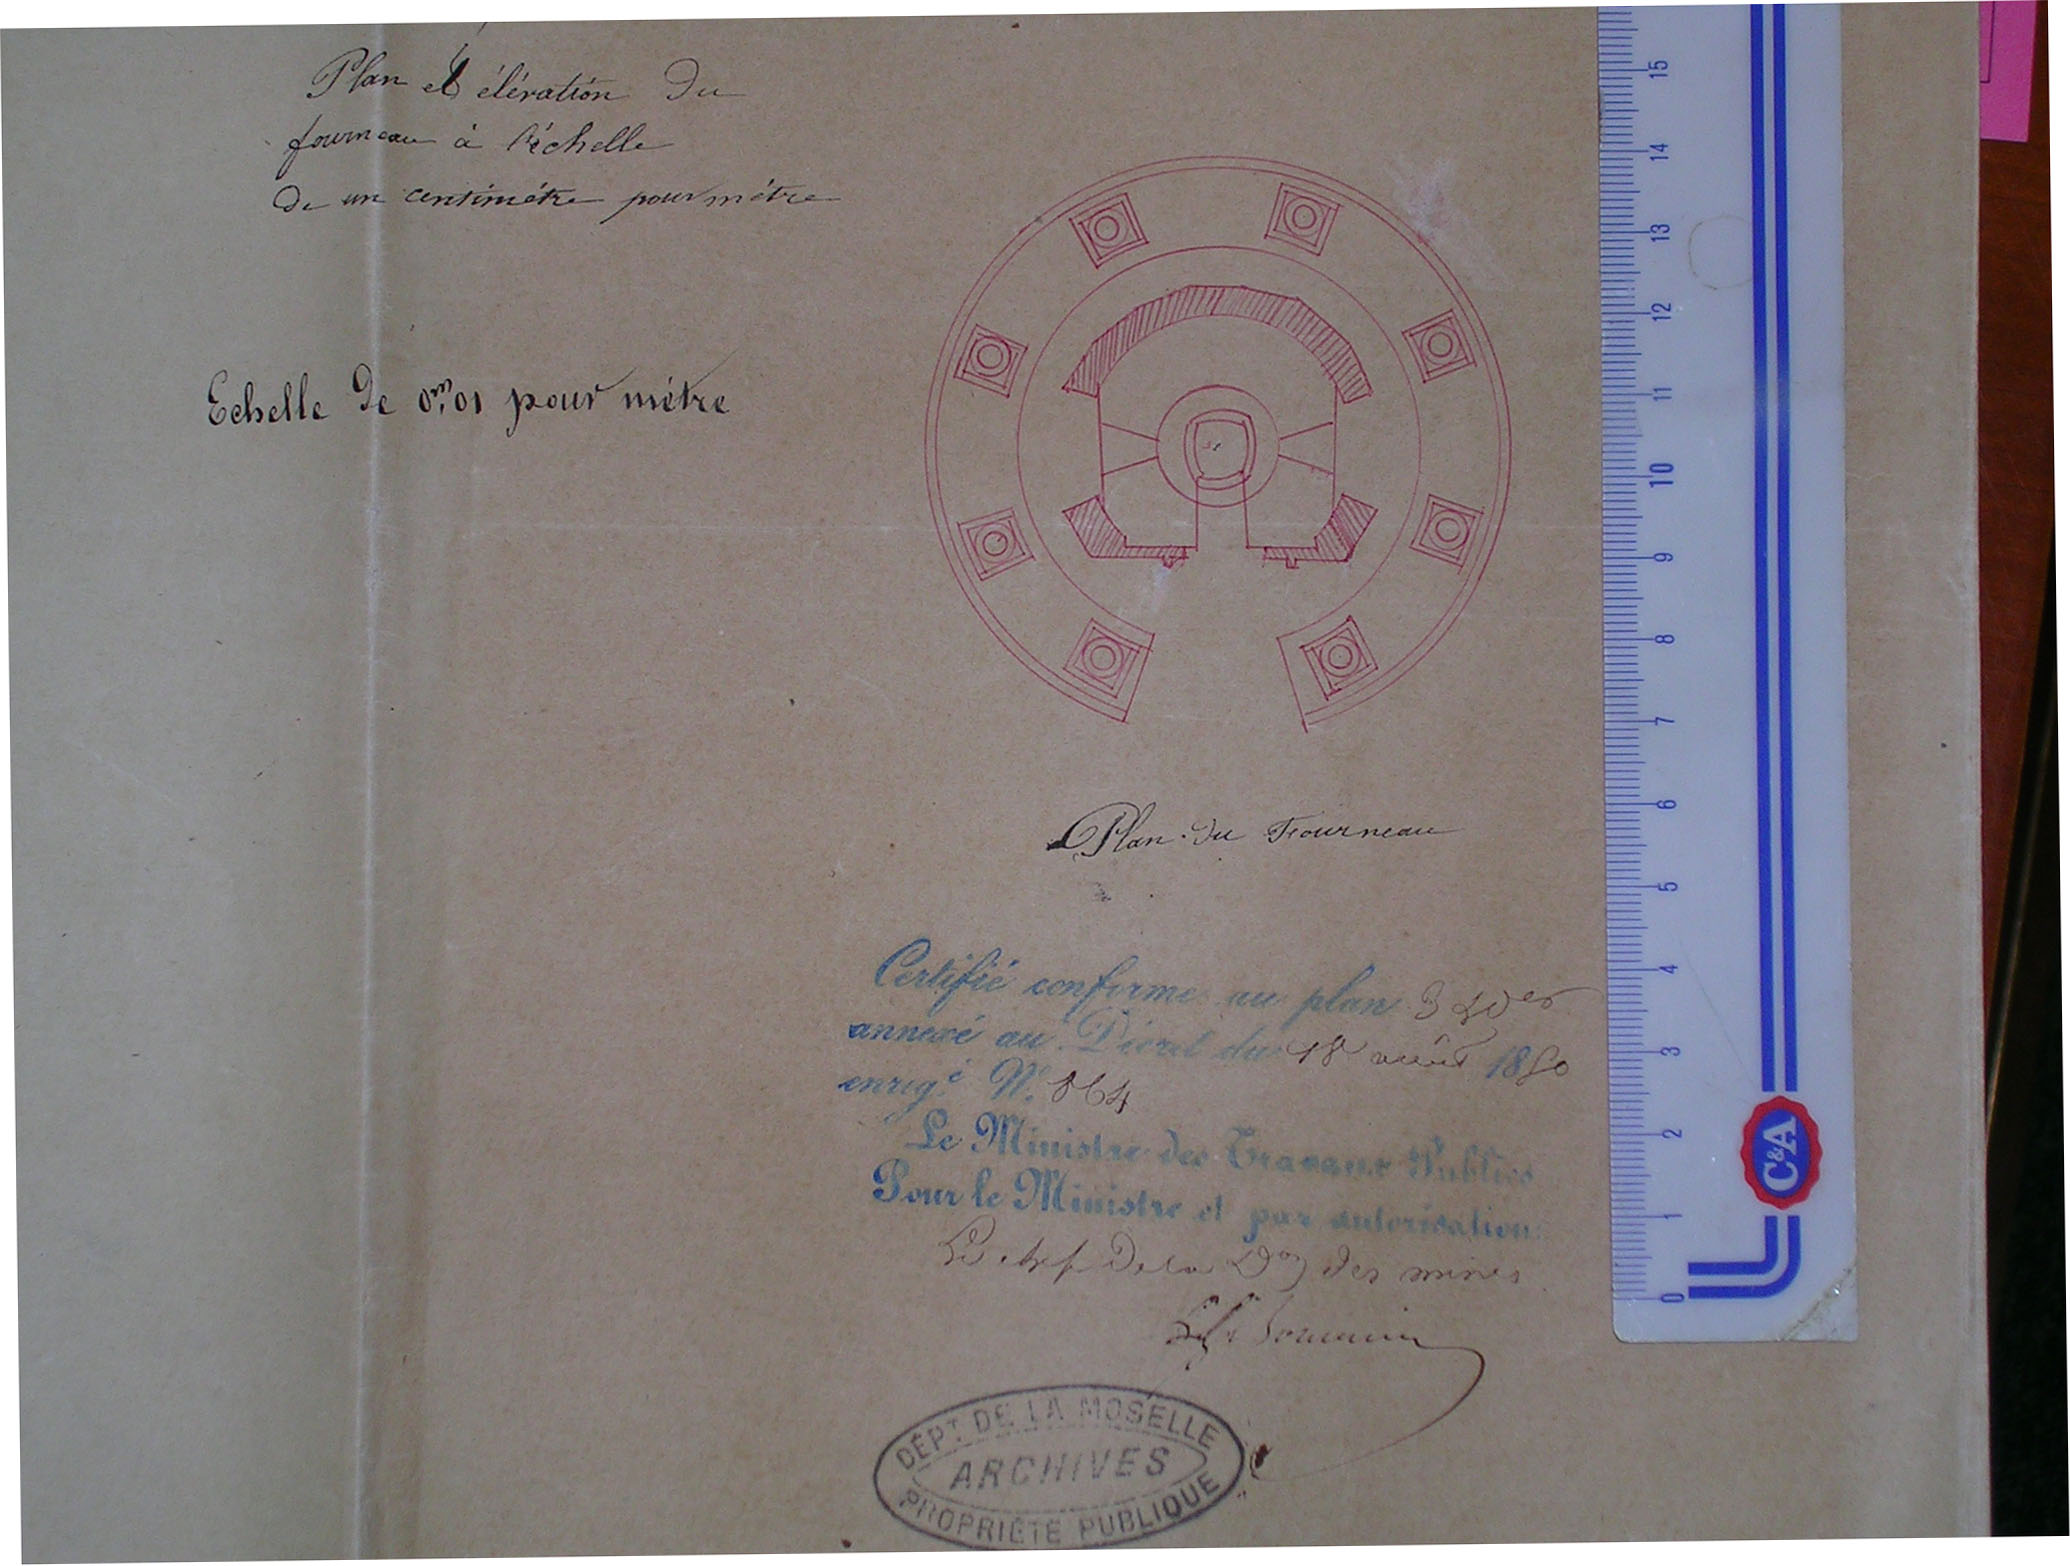 Plan et élévation du
fourneau à l'échelle
de un centimétre pour métre
Echelle de 0m,01 pour métre
Plan du Fourneau
Certifié conforme au plan
annexé au Décret du 18 août 1850
enrigé. N. 864
Le Ministre des Travaux Publics
Pour le Ministre et par autorisation
Le chef de la Don des mines
DÉPT. DE LA MOSELLE
ARCHIVES
PROPRIÉTÉ PUBLIQUE
15
14
13
12
11
10
9
8
7
6
5
4
3
2
1
0
C&A